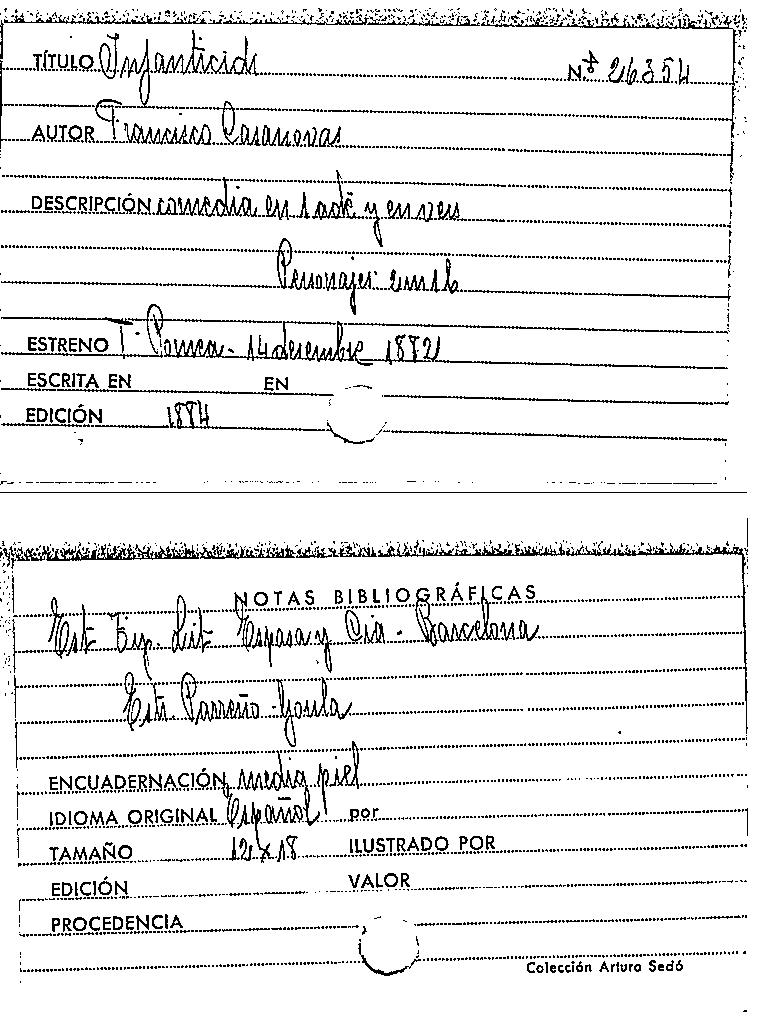 TÍTULO Infanticidi Nº 26354
AUTOR Francisco Casanovas
DESCRIPCIÓN comedia en 1 acte y en vers
Personajes
ESTRENO T. Romea - 14 desembre 1882
ESCRITA EN EN
EDICIÓN 1884
NOTAS BIBLIOGRÁFICAS
Est. Tip. Lit. Espasa y Cia - Barcelona
Parreño - Goula
ENCUADERNACIÓN media piel
IDIOMA ORIGINAL Español por
TAMAÑO 12 x 18 ILUSTRADO POR
EDICIÓN VALOR
PROCEDENCIA
Colección Arturo Sedó